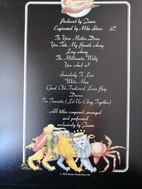 Produced by Queen
Engineered by Mike Stone
Tie Your Mother Down
You Take My Breath Away
Long Away
The Millionaire Waltz
You and I
Somebody To Love
White Man
Good Old Fashioned Lover Boy
Drowse
Teo Torriatte (Let Us Cling Together)
All titles composed, arranged
and performed
exclusively by Queen